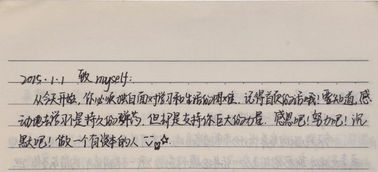 2015.1.1 致 myself:
从今天开始,你必须独自面对学习和生活的困难。记得首页的话哦!要知道,感
动地去学习是持久的 但却是支持你巨大的力量。感恩吧!努力吧!沉
默吧!做一个有资本的人